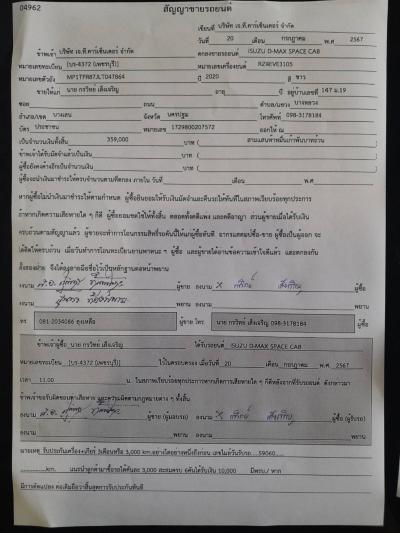 04962
สัญญาขายรถยนต์
เขียนที่ บริษัท เจ.ที.คาร์เซ็นเตอร์ จำกัด
วันที่ 20 เดือน กรกฎาคม พ.ศ. 2567
ข้าพเจ้า บริษัท เจ.ที.คาร์เซ็นเตอร์ จำกัด ตกลงขายรถยนต์ ISUZU D-MAX SPACE CAB
หมายเลขทะเบียน (บร-4372 (เพชรบุรี)) หมายเลขเครื่องยนต์ RZ4EVE3105
หมายเลขตัวถัง MP1TFR87JLT047864 ปี 2020 สี ขาว
ขายให้แก่ นาย กรวิทย์ เส็งเจริญ อายุ ปี อยู่บ้านเลขที่ 147 ม.19
ซอย ถนน ตำบล/แขวง บางหลวง
อำเภอ/เขต บางเลน จังหวัด นครปฐม โทรศัพท์ 098-3178184
บัตร ประชาชน หมายเลข 1729800207572 ออกให้ ณ
เป็นจำนวนเงินทั้งสิ้น 359,000 บาท ( สามแสนห้าหมื่นเก้าพันบาทถ้วน )
ข้าพเจ้าได้รับมัดจำแล้วเป็นเงิน บาท ( )
ผู้ซื้อยังคงค้างอีกเป็นจำนวนเงิน บาท ( )
ผู้ซื้อจะนำเงินมาชำระให้ครบจำนวนตามที่ตกลง ภายใน วันที่ เดือน พ.ศ.
หากผู้ซื้อไม่นำเงินมาชำระให้ตามกำหนด ผู้ซื้อยินยอมให้รับเงินมัดจำและคืนรถให้ทันทีในสภาพเรียบร้อยทุกประการ
ถ้าหากเกิดความเสียหายใด ๆ ก็ดี ผู้ซื้อยอมชดใช้ให้ทั้งสิ้น ตลอดทั้งคดีแพ่ง และคดีอาญา ส่วนผู้ขายเมื่อได้รับเงิน
ครบถ้วนตามสัญญาแล้ว ผู้ขายจะทำการโอนกรรมสิทธิ์รถคันนี้ให้แก่ผู้ซื้อทันที อากรแสตมป์ซื้อ-ขาย ผู้ซื้อเป็นผู้ออก จะ
ได้ติดให้ครบถ้วน เมื่อวันทำการโอนทะเบียนยานพาหนะ ๆ ผู้ซื้อ และผู้ขายได้อ่านข้อความเข้าใจดีแล้ว และตกลงกัน
ทั้งสองฝ่าย จึงได้ลงลายมือชื่อไว้เป็นหลักฐานต่อหน้าพยาน
ลงนาม ผู้ขาย ลงนาม X กรวิทย์ เส็งเจริญ ผู้ซื้อ
ลงนาม พยาน ลงนาม พยาน
โทร. 081-2034086 ผู้ขาย โทร. นาย กรวิทย์ เส็งเจริญ 098-3178184 ผู้ซื้อ
ข้าพเจ้าผู้ซื้อ นาย กรวิทย์ เส็งเจริญ ได้รับรถยนต์ ISUZU D-MAX SPACE CAB
หมายเลขทะเบียน (บร-4372 (เพชรบุรี)) ไปในครอบครอง เมื่อวันที่ 20 กรกฎาคม พ.ศ. 2567
เวลา 11.00 น. ในสภาพเรียบร้อยทุกประการหากเกิดการเสียหายใด ๆ ก็ดีหลังจากที่รับรถยนต์ ดังกล่าวมา
ข้าพเจ้าขอรับผิดชอบทุกเสียหาย และความผิดตามกฎหมายต่าง ๆ ทั้งสิ้น
ลงนาม ผู้ขาย (ผู้มอบรถ) ลงนาม X กรวิทย์ เส็งเจริญ ผู้ซื้อ (ผู้รับรถ)
ลงนาม พยาน ลงนาม พยาน
หมายเหตุ รับประกันเครื่อง+เกียร์ 3เดือนหรือ 3,000 km.อย่างใดอย่างหนึ่งถึงก่อน เลขไมล์วันรับรถ.....59060
km. แนะนำลูกค้ามาซื้อรถได้คันละ 3,000 สะสมครบ 6คันได้รับเงิน 10,000 มีพรบ./
มีการดัดแปลง ต่อเติมถือว่าสิ้นสุดการรับประกันทันที